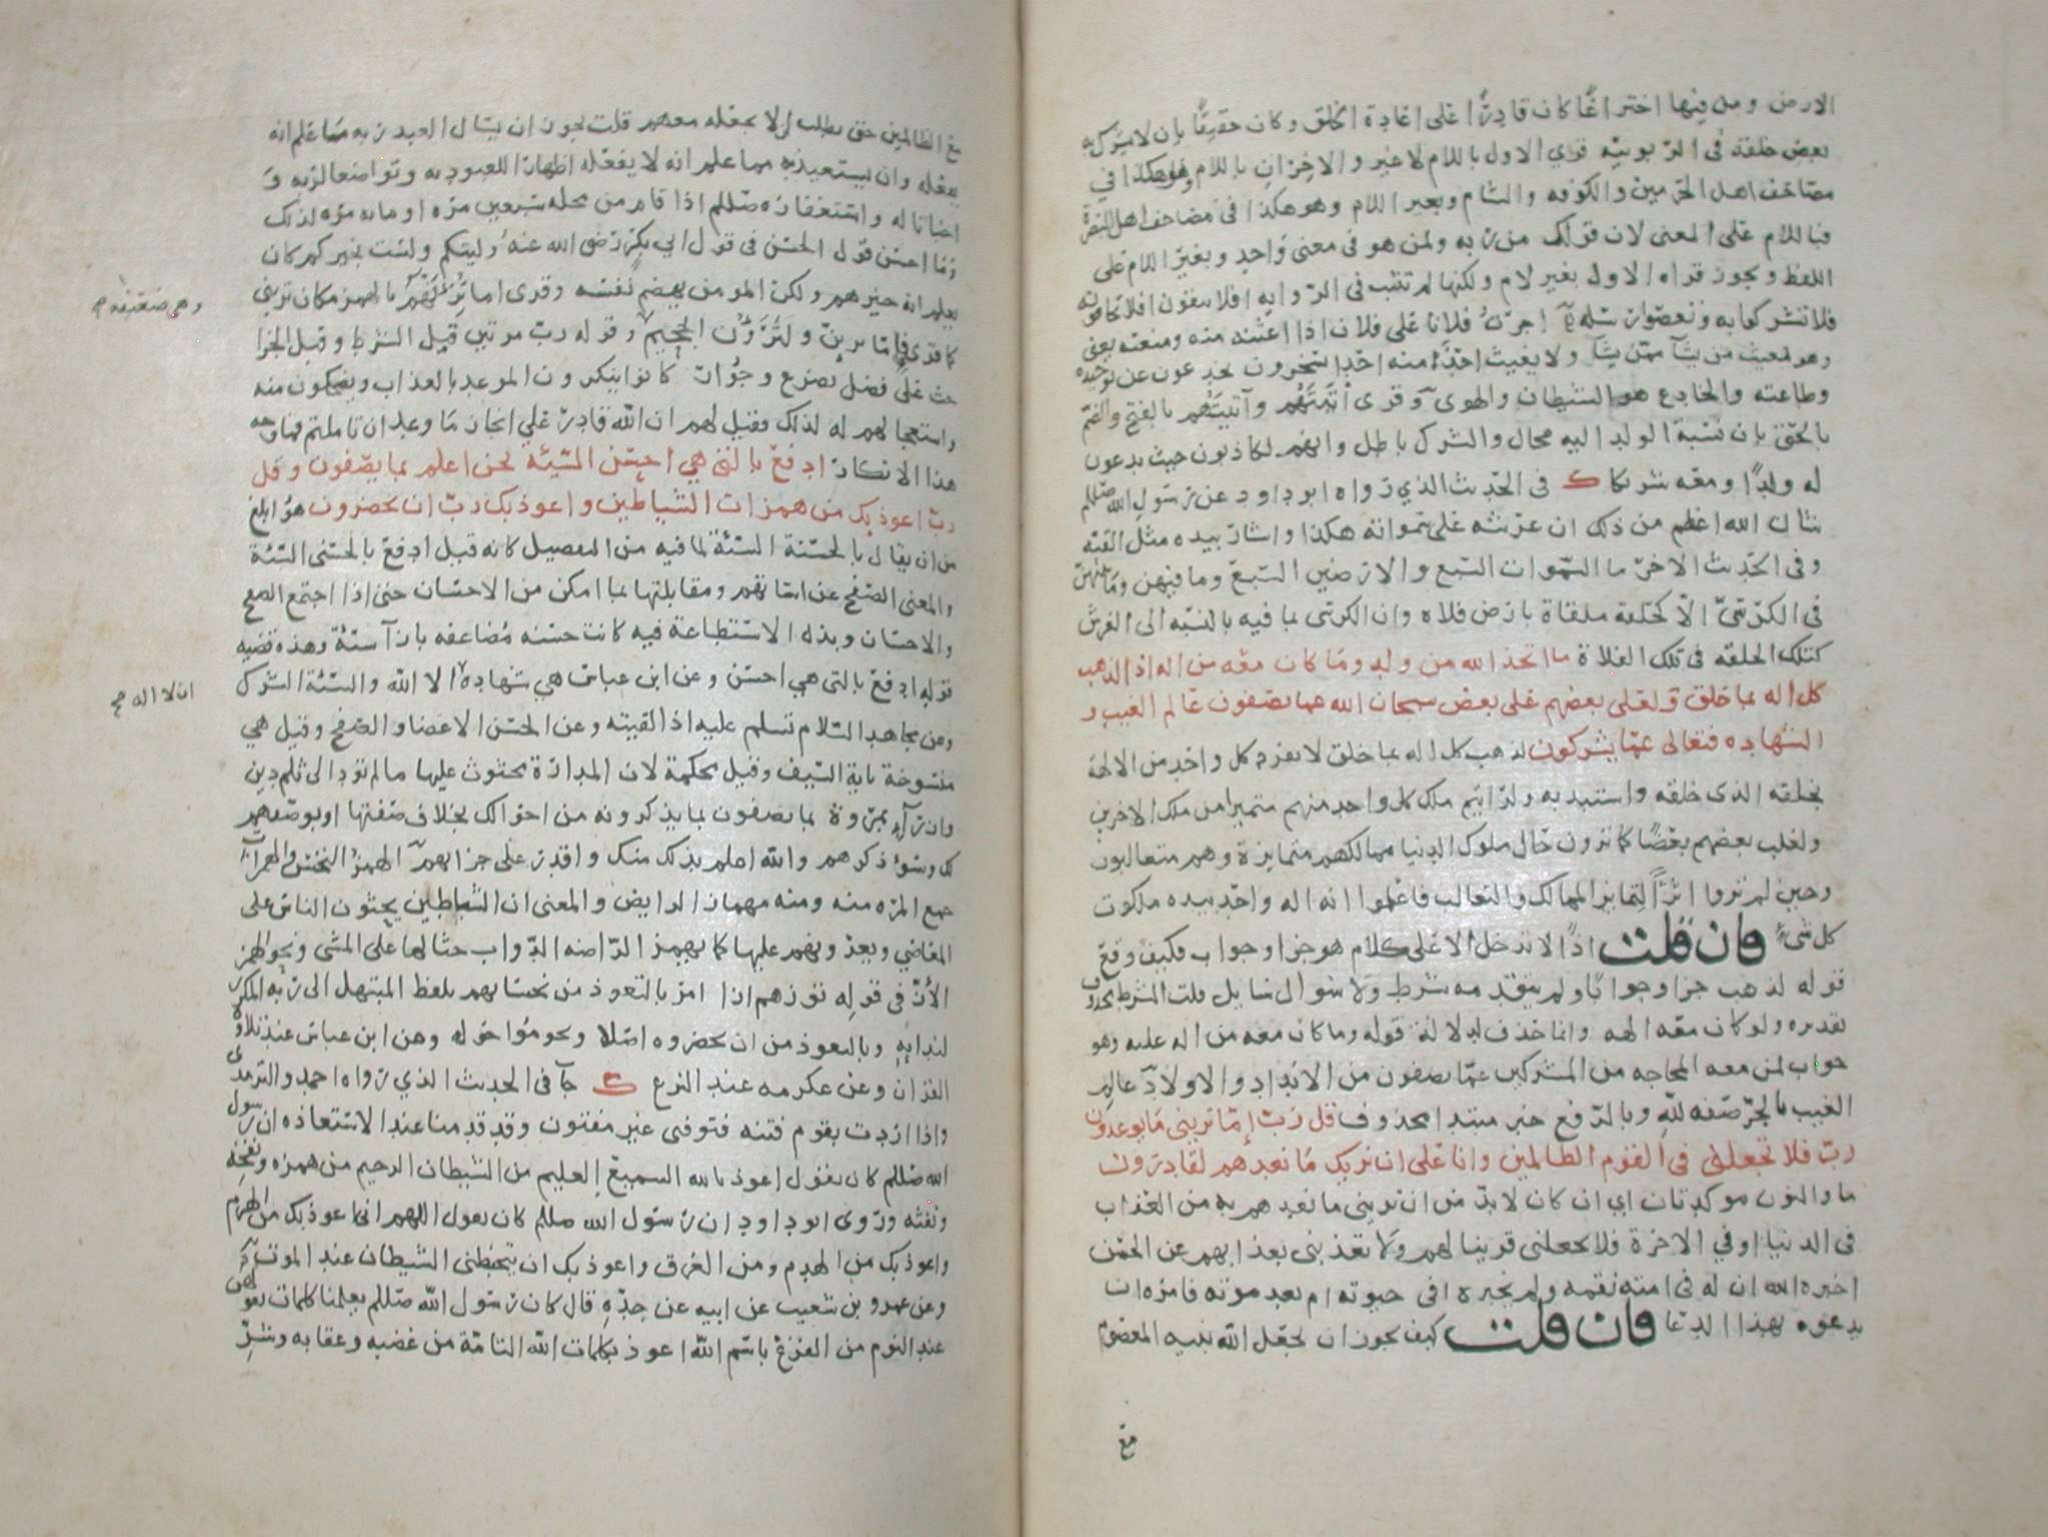 الارض ومن فيها اختراعًا كان قادرًا على اعادة الخلق وكان حقيقًا بان لا يشرك به
بعض خلقه في الربوبيه قري الاول باللام لا غير والاخران باللام وهو هكذا في
مصاحف اهل الحرمين والكوفه والشام وبغير اللام وهو هكذا في مصاحف اهل البصرة
فباللام على المعنى لان قولك من ربه ولمن هو في معنى واحد وبغير اللام على
اللفظ ويجوز قراه الاول بغير لام ولكنها لم تثبت في الرواية افلا تتقون افلا تخافونه
فلا تشركوا به وتعصوا رسله اجرتُ فلانا على فلان اذا اغثته منه ومنعته يعني
وهو يغيث من يشآ ممن يشآ ولا يغيث احدٌ منه احدا تسحرون تخدعون عن توحيده
وطاعته والخادع هو الشيطان والهوى وقرى أتيتَهُم وأتيتُهم بالفتح والضم
بالحق بان نسبة الولد اليه محال والشرك باطل وانهم لكاذبون حيث يدعون
له ولدًا ومعه شريكا ك في الحديث الذي رواه ابو داود عن رسول الله صللم
شان الله اعظم من ذلك ان عرشه على سمواته هكذا واشار بيده مثل القبه
وفي الحديث الاخر ما السموات السبع والارضين السبع وما فيهن وما بينهن
في الكرسيّ الا كحلقة ملقاة بارض فلاه وان الكرسي بما فيه بالنسبه الى العرش
كتلك الحلقه في تلك الفلاة ما اتخذ الله من ولد وما كان معه من اله اذا لذهب
كل اله بما خلق ولعلى بعضهم على بعض سبحان الله عما يصفون عالم الغيب و
الشهاده فتعالى عمّا يشركون لذهب كل اله بما خلق لانفرد كل واحد من الالهة
بخلقه الذى خلقه واستبد به ولرايتم ملك كل واحد منهم متميزا من ملك الاخرين
ولغلب بعضهم بعضًا كما ترون حال ملوك الدنيا ممالكهم متمايزة وهم متغالبون
وحين لم تروا اثرًا لتمايز الممالك والتغالب فاعلموا انه اله واحد بيده ملكوت
كل شيء فان قلت اذًا لا تدخل الا على كلام هو جزا وجواب فكيف وقع
قوله لذهب جزا وجوابًا ولم يتقدمه شرط ولا سوال سايل قلت الشرط محذوف
تقديره ولو كان معه الهه وانما حذف لدلالة قوله وما كان معه من اله عليه وهو
جواب لمن معه المحاجه من المشركين عمّا يصفون من الانداد والاولاد عالم
الغيب بالجر صفه لله وبالرفع خبر مبتدا محذوف قل ربّ إمّا تريني ما يوعدون
ربّ فلا تجعلني في القوم الظالمين وانا على ان نريك ما نعدهم لقادرون
ما والنون موكدتان اي ان كان لا بدّ من ان تريني ما تعدهم به من العذاب
في الدنيا او في الاخرة فلا تجعلني قرينا لهم ولا تعذبني بعذابهم عن الحسن
اخبره الله ان له في امته نقمه ولم يخبره افي حيوته ام بعد موته فامره ان
يدعوه بهذا الدعا فان قلت كيف يجوز ان يجعل الله نبيه المعصوم
مع
مع الظالمين حتى يطلب ان لا يجعله معهم قلت يجوز ان يسال العبد ربه ما علم انه
يفعله وان يستعيذ به مما علم انه لا يفعله اظهارا للعبوديه وتواضعا لربه و
اخباتا له واستغفاره صللم اذا قام من مجلسه سبعين مره او مايه مره لذلك
وما احسن قول الحسن في قول ابي بكر رضى الله عنه وليتكم ولست بخيركم كان
يعلم انه خيرهم ولكن المومن يهضم نفسه وقرى اما ترئنهم بالهمز مكان تريني
وهي ضعيفه م
كما قرى فإمّا ترين ولترؤن الجحيم وقوله ربّ مرتين قبل الشرط وقبل الجزا
حث على فضل تضرع وجُوار كانوا ينكرون الموعد بالعذاب ويضحكون منه
واستعجالهم له لذلك فقيل لهم ان الله قادر على انجاز ما وعد ان تاملتم فما وجه
هذا الانكار ادفع بالتي هي احسن السّيئة نحن اعلم بما يصفون وقل
ربّ اعوذ بك من همزات الشياطين واعوذ بك ربّ ان يحضرون هو ابلغ
من ان يقال بالحسنة السيئة لما فيه من التفصيل كانه قيل ادفع بالحسنى السيئة
والمعنى الصفح عن اساتهم ومقابلتها بما امكن من الاحسان حتى اذا اجتمع الصفح
والاحسان وبذل الاستطاعة فيه كانت حسنه مُضاعفه بازآ سيئة وهذه قضيه
قوله ادفع بالتي هي احسن وعن ابن عباس هي شهادة الا الله والسيئة الشرك
ان لا اله صح
وعن مجاهد السّلام تسلم عليه اذا لقيته وعن الحسن الاغضا والصفح وقيل هي
منسوخة باية السيف وقيل محكمة لان المداراة محثوث عليها ما لم تود الى ثلم دين
وازرآء بمروة بما يصفون بما يذكرونه من احوالك بخلاف صفتها او بوصفهم
لك وسوء ذكرهم والله اعلم بذلك منك واقدر على جزايهم الهمز النخس والهمزات
جمع المره منه ومنه مهماز الرايض والمعنى ان الشياطين يحثون الناس على
المعاصي ويغرونهم عليها كما يهمز الراضه الدواب حثا لها على المشى ونحو الهمز
الأزّ في قوله تؤزهم ازا امر بالتعوذ من نخساتهم بلفظ المبتهل الى ربه المكرر
لندايه وبالتعوذ من ان يحضروه اصلا ويحوموا حوله وعن ابن عباس عند تلاوة
القران وعن عكرمه عند النزع ك جآ في الحديث الذي رواه احمد والترمدى
واذا اردت بقوم فتنه فتوفنى غير مفتون وقد قدمنا عند الاستعاذه ان رسول
الله صللم كان يقول اعوذ بالله السميع العليم من الشيطان الرجيم من همزه ونفخه
ونفثه وروى ابو داود ان رسول الله صللم كان يقول اللهم اني اعوذ بك من الهرم
واعوذ بك من الهدم ومن الغرق واعوذ بك ان يتخبطنى الشيطان عند الموت
وعن عمرو بن شعيب عن ابيه عن جدّه قال كان رسول الله صللم يعلمنا كلمات نقولهن
عند النوم من الفزع باسم الله اعوذ بكلمات الله التامّة من غضبه وعقابه وشرّ